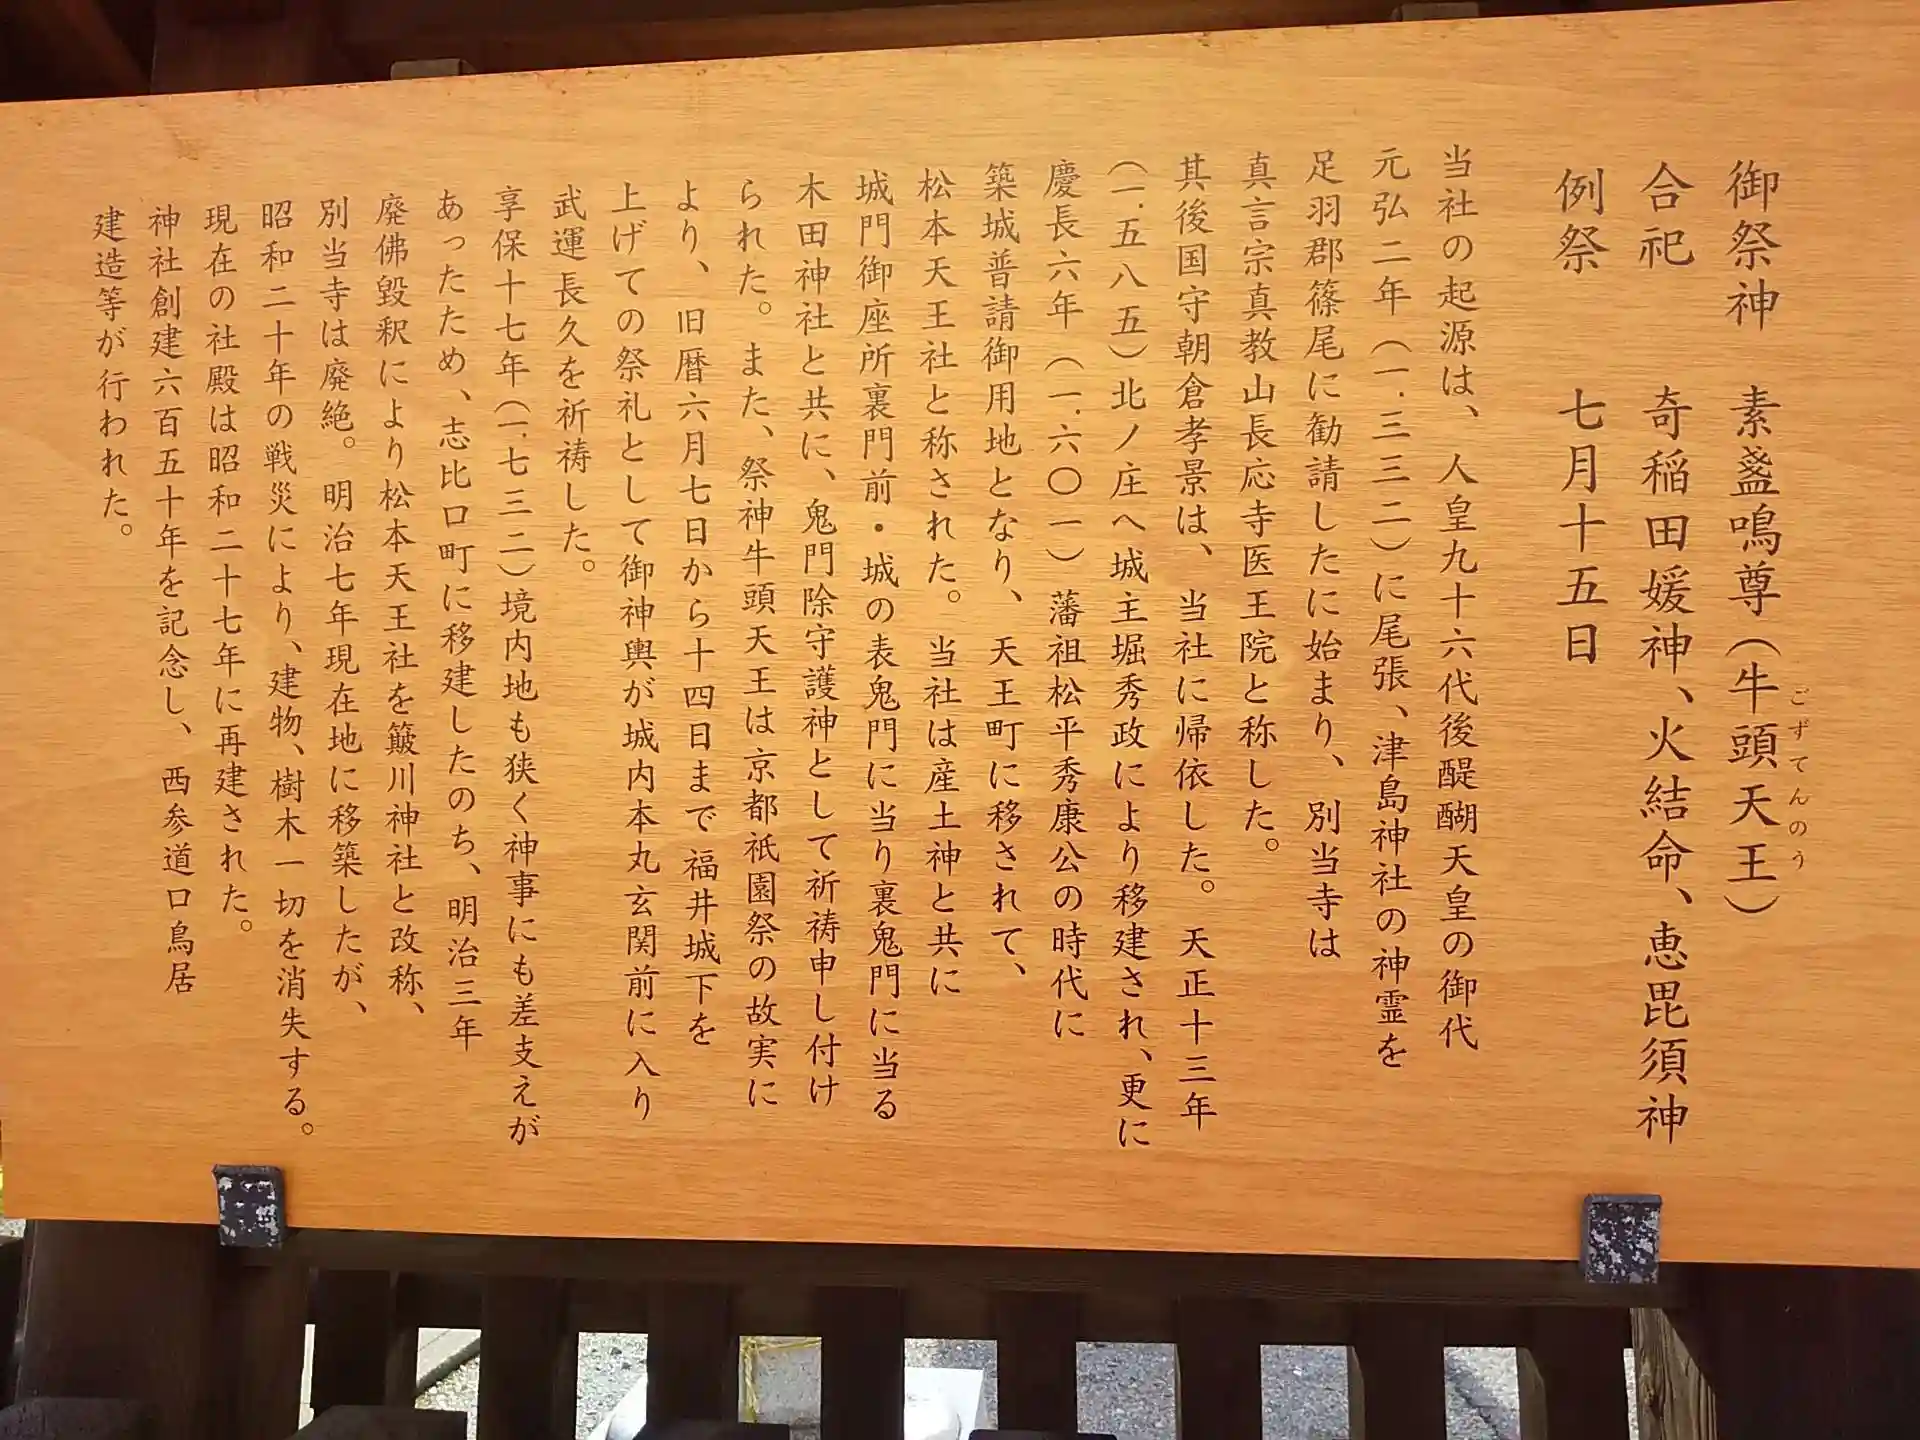 御祭神　素盞鳴尊（牛頭天王）
ごずてんのう
合祀　奇稲田媛神、火結命、恵毘須神
例祭　七月十五日
当社の起源は、人皇九十六代後醍醐天皇の御代
元弘二年（一.三三二）に尾張、津島神社の神霊を
足羽郡篠尾に勧請したに始まり、別当寺は
真言宗真教山長応寺医王院と称した。
其後国守朝倉孝景は、当社に帰依した。天正十三年
（一.五八五）北ノ庄へ城主堀秀政により移建され、更に
慶長六年（一.六〇一）藩祖松平秀康公の時代に
築城普請御用地となり、天王町に移されて、
松本天王社と称された。当社は産土神と共に
城門御座所裏門前・城の表鬼門に当り裏鬼門に当る
木田神社と共に、鬼門除守護神として祈祷申し付け
られた。また、祭神牛頭天王は京都祇園祭の故実に
より、旧暦六月七日から十四日まで福井城下を
上げての祭礼として御神輿が城内本丸玄関前に入り
武運長久を祈祷した。
享保十七年（一.七三二）境内地も狭く神事にも差支えが
あったため、志比口町に移建したのち、明治三年
廃佛毀釈により松本天王社を簸川神社と改称、
別当寺は廃絶。明治七年現在地に移築したが、
昭和二十年の戦災により、建物、樹木一切を消失する。
現在の社殿は昭和二十七年に再建された。
神社創建六百五十年を記念し、西参道口鳥居
建造等が行われた。